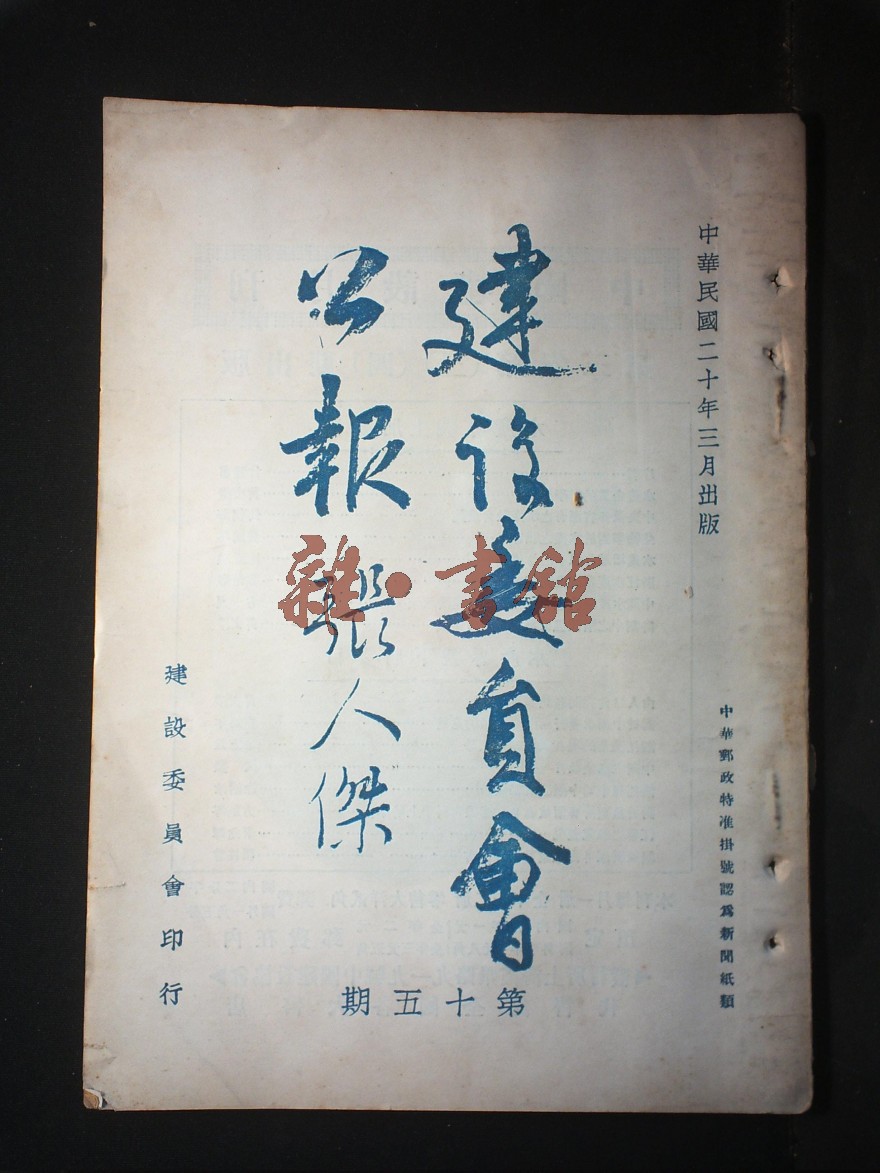 中華民國二十年三月出版
中華郵政特准掛號認爲新聞紙類
建设委員會
公報 張人傑
第十五期
建設委員會印行
雜·書館